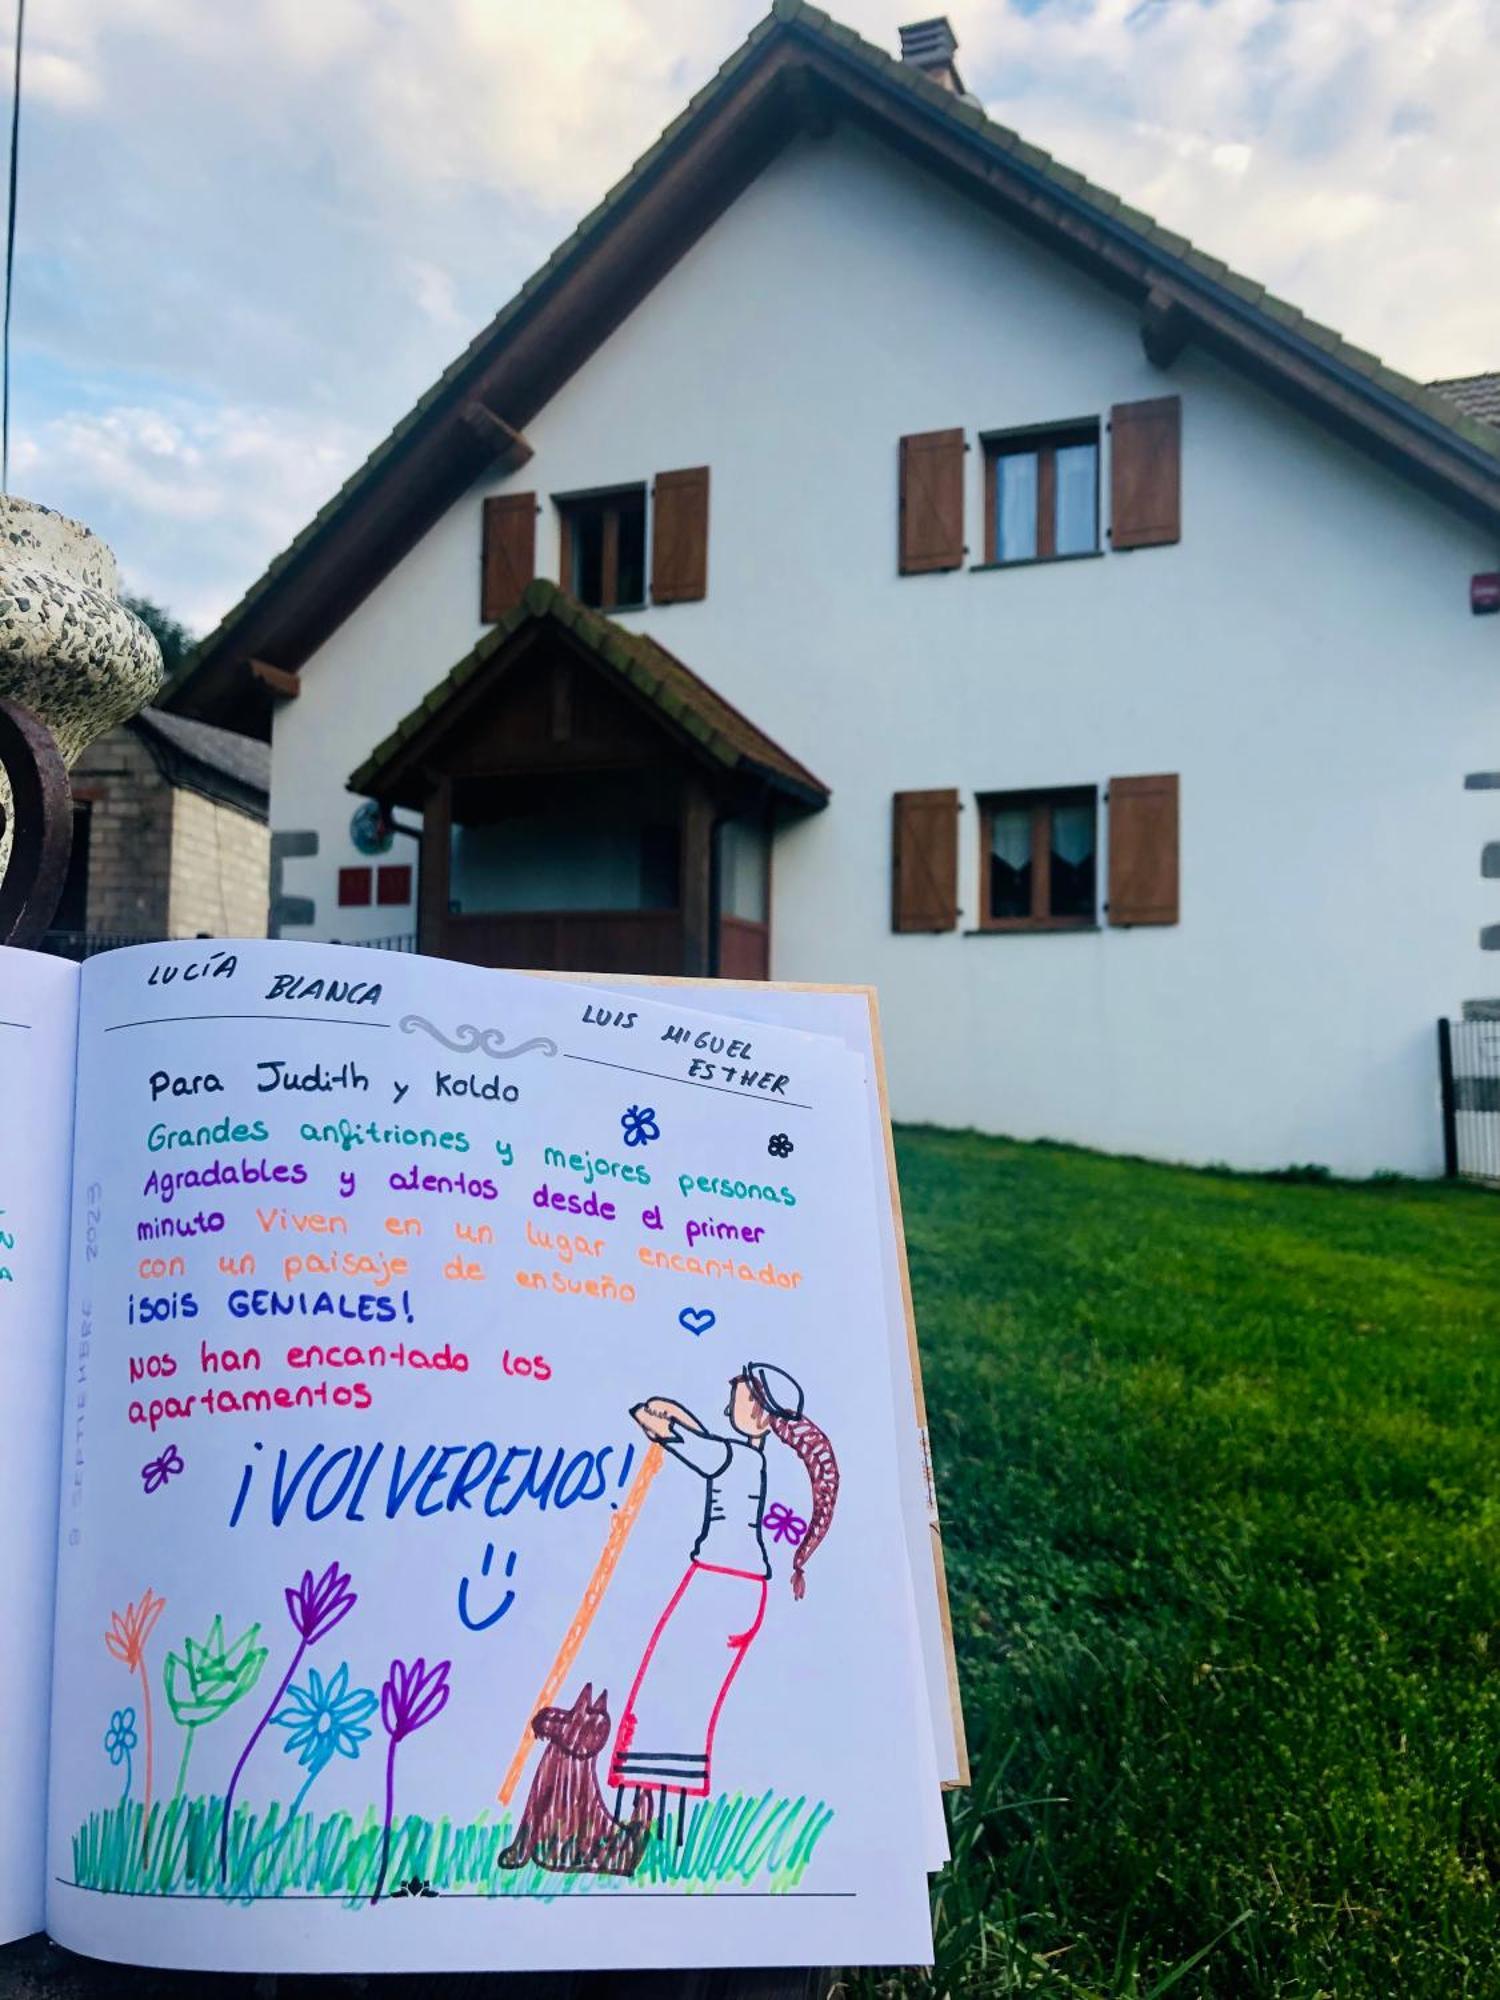 LUCÍA
BLANCA
LUIS MIGUEL
ESTHER
Para Judith y Koldo
Grandes anfitriones y mejores personas
Agradables y atentos desde el primer
minuto Viven en un lugar encantador
con un paisaje de ensueño
¡SOIS GENIALES!
Nos han encantado los
apartamentos
¡VOLVEREMOS!
SEPTIEMBRE 2023